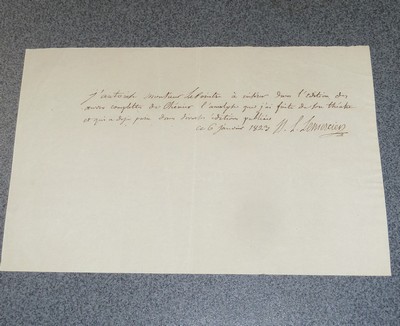 J'autorise monsieur à insérer dans l'édition des
œuvres complettes de Chénier l'analyse que j'ai faite de son théâtre
et qui a déjà paru dans édition publiée
ce 6 janvier 1823 N. L. Lemercier